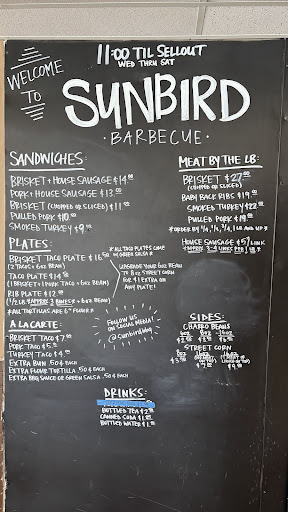 11:00 TIL SELLOUT
WED THRU SAT
WELCOME
TO
SUNBIRD
· BARBECUE ·
SANDWICHES:
BRISKET + HOUSE SAUSAGE $14.00
PORK + HOUSE SAUSAGE $13.00
BRISKET (CHOPPED OR SLICED) $11.00
PULLED PORK $10.00
SMOKED TURKEY $9.00
PLATES:
BRISKET TACO PLATE $16.50
(2 TACOS + 6OZ BEAN)
TACO PLATE $14.50
(1 BRISKET + 1 PORK TACO + 6OZ BEAN)
RIB PLATE $12.00
(1/2 LB + 6OZ BEAN)
*ALL TORTILLAS ARE 6" FLOUR*
*ALL TACO PLATES COME
W/ GREEN SALSA*
UPGRADE YOUR 6OZ BEAN
TO 8OZ STREET CORN
FOR $1 EXTRA ON
ANY PLATE!
A LA CARTE:
BRISKET TACO $7.00
PORK TACO $5.00
TURKEY TACO $4.00
EXTRA BUN .50¢ EACH
EXTRA FLOUR TORTILLA .50¢ EACH
EXTRA BBQ SAUCE OR GREEN SALSA .50¢ EACH
FOLLOW US
ON SOCIAL MEDIA!
@Sunbirdbbq
MEAT BY THE LB:
BRISKET $27.00
(CHOPPED OR SLICED)
BABY BACK RIBS $19.00
SMOKED TURKEY $22.00
PULLED PORK $19.00
*ORDER BY 1/4, 1/2, 3/4, 1 LB AND UP*
HOUSE SAUSAGE $5/LINK
SIDES:
CHARRO BEANS
6OZ 8OZ 16OZ
STREET CORN
8OZ
DRINKS:
BOTTLED TEA $2.00
CANNED SODA $1.00
BOTTLED WATER $1.00